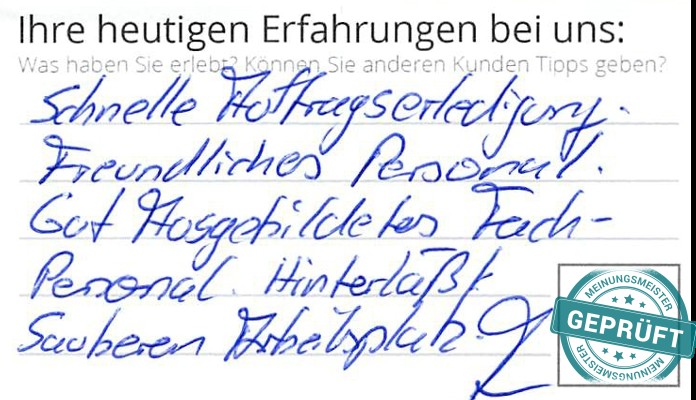 Ihre heutigen Erfahrungen bei uns:
Was haben Sie erlebt? Können Sie anderen Kunden Tipps geben?
Schnelle Auftragserledigung.
Freundliches Personal.
Gut Ausgebildetes Fach-
Personal. Hinterläßt
Sauberen Arbeitsplatz.
MEINUNGSMEISTER
GEPRÜFT
MEINUNGSMEISTER